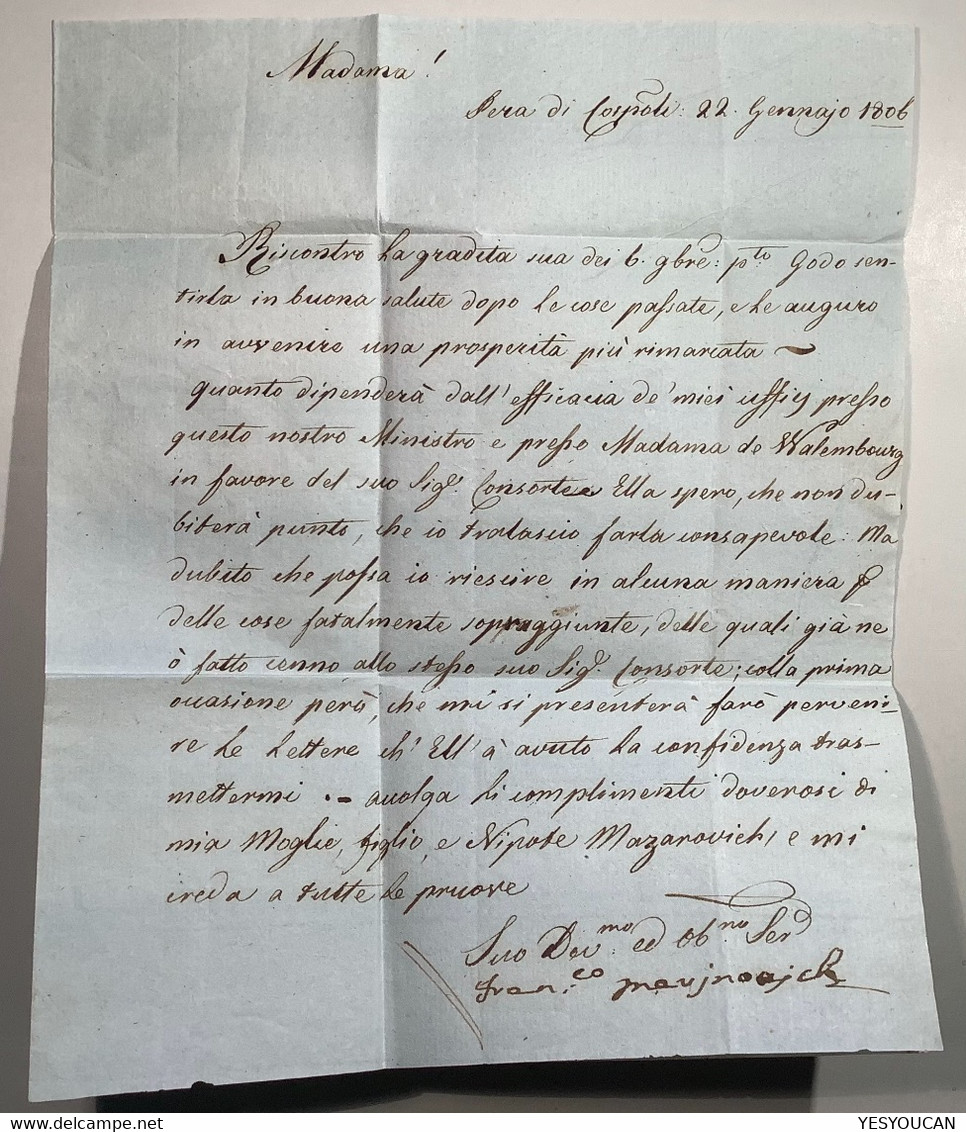 Madama!
Pera di Cospoli: 22. Gennajo 1806
Riscontro la gradita sua dei 6. 9bre: pto Godo sen-
tirla in buona salute dopo le cose passate, e le auguro
in avvenire una prosperità più rimarcata ~
quanto dipenderà dall'efficacia de' miei uffizj presso
questo nostro Ministro e presso Madama de Walembourg
in favore del suo Sigr. Consorte Ella spero, che non du-
biterà punto, che io tralascio farla consapevole: Ma
dubito che possa io riescire in alcuna maniera
delle cose fatalmente sopraggiunte, delle quali già ne
ò fatto cenno allo stesso suo Sigr. Consorte; colla prima
occasione però, che mi si presenterà farò perveni-
re le Lettere ch'Ell'à avuto la confidenza tras-
mettermi .- accolga li complimenti doverosi di
mia Moglie, figlio, e Nipote Mazarovich, e mi
creda a tutte le pruove
Suo Dev.mo ed Ob.no Serd
Fran.co
YESYOUCAN